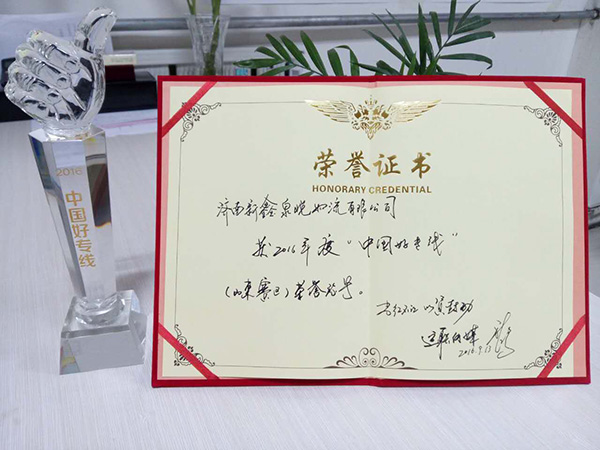 2016
中国好专线
荣誉证书
HONORARY CREDENTIAL
济南新鑫泉物流有限公司
获2016年度“中国好专线”
(山东赛区)荣誉称号。
此证 以资鼓励
运联传媒
2016.9.13